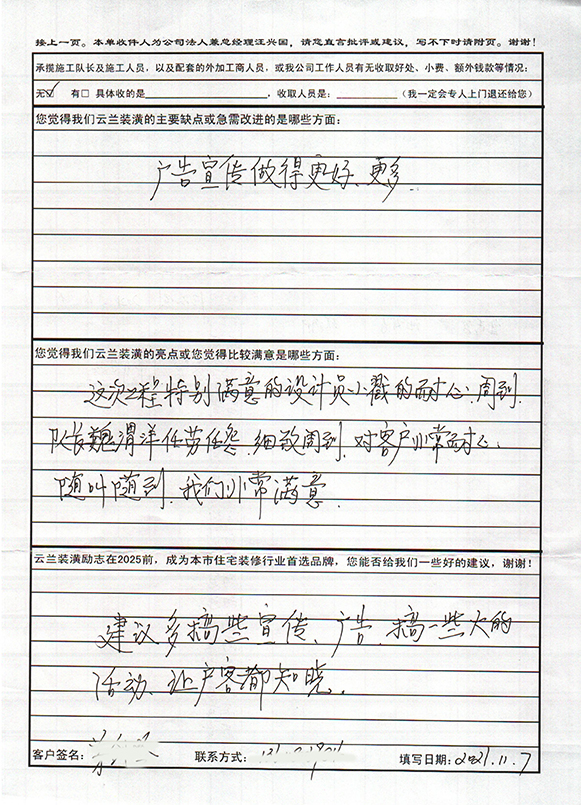 接上一页。本单收件人为公司法人兼总经理汪兴国,请您直言批评或建议,写不下时请附页。谢谢!
承揽施工队长及施工人员,以及配套的外加工商人员,或我公司工作人员有无收取好处、小费、额外钱款等情况:
无☑ 有□ 具体收的是______,收取人员是:______(我一定会专人上门退还给您)
您觉得我们云兰装潢的主要缺点或急需改进的是哪些方面:
广告宣传做得更好、更多
您觉得我们云兰装潢的亮点或您觉得比较满意是哪些方面:
这次工程特别满意的设计员小戳的耐心、周到.
队长魏渭洋任劳任怨、细致周到、对客户非常耐心、
随叫随到、我们非常满意.
云兰装潢励志在2025前,成为本市住宅装修行业首选品牌,您能否给我们一些好的建议,谢谢!
建议多搞些宣传、广告、搞一些大的
活动、让户客都知晓.
客户签名:
联系方式:
填写日期:2021.11.7